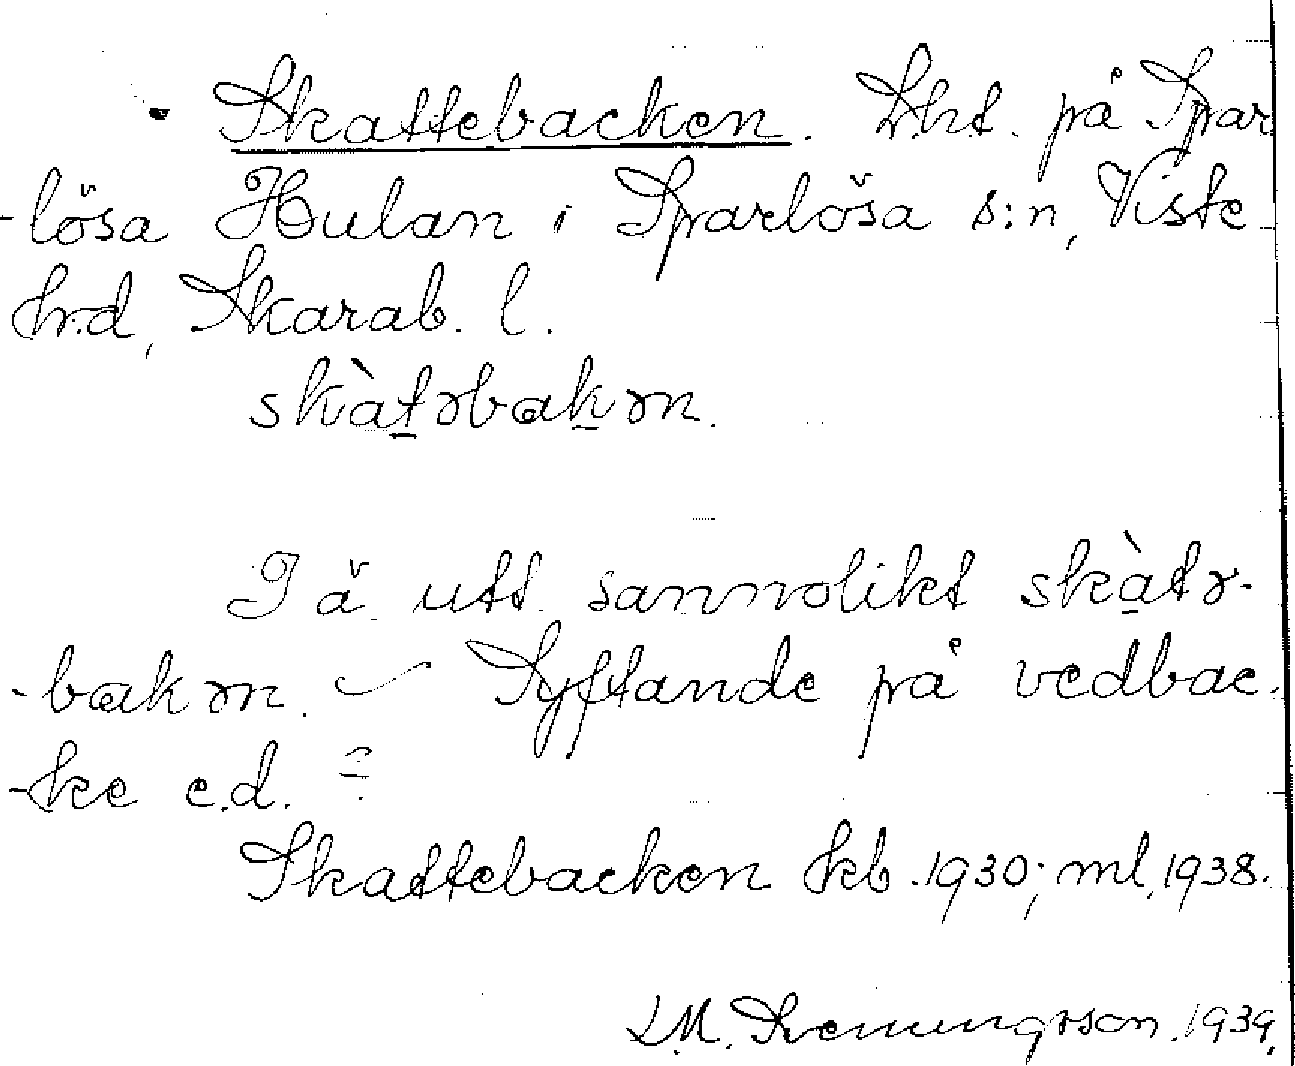 Skattebacken. Lht. på Spar
-lösa Hulan i Sparlösa s:n, Viste
hrd, Skarab. l.
skàtəbakən.
I ä utt. sannolikt skàtə-
-bakən. – Syftande på vedbac-
-ke e.d. ?
Skattebacken kb. 1930; ml. 1938.
L.M. 1939.